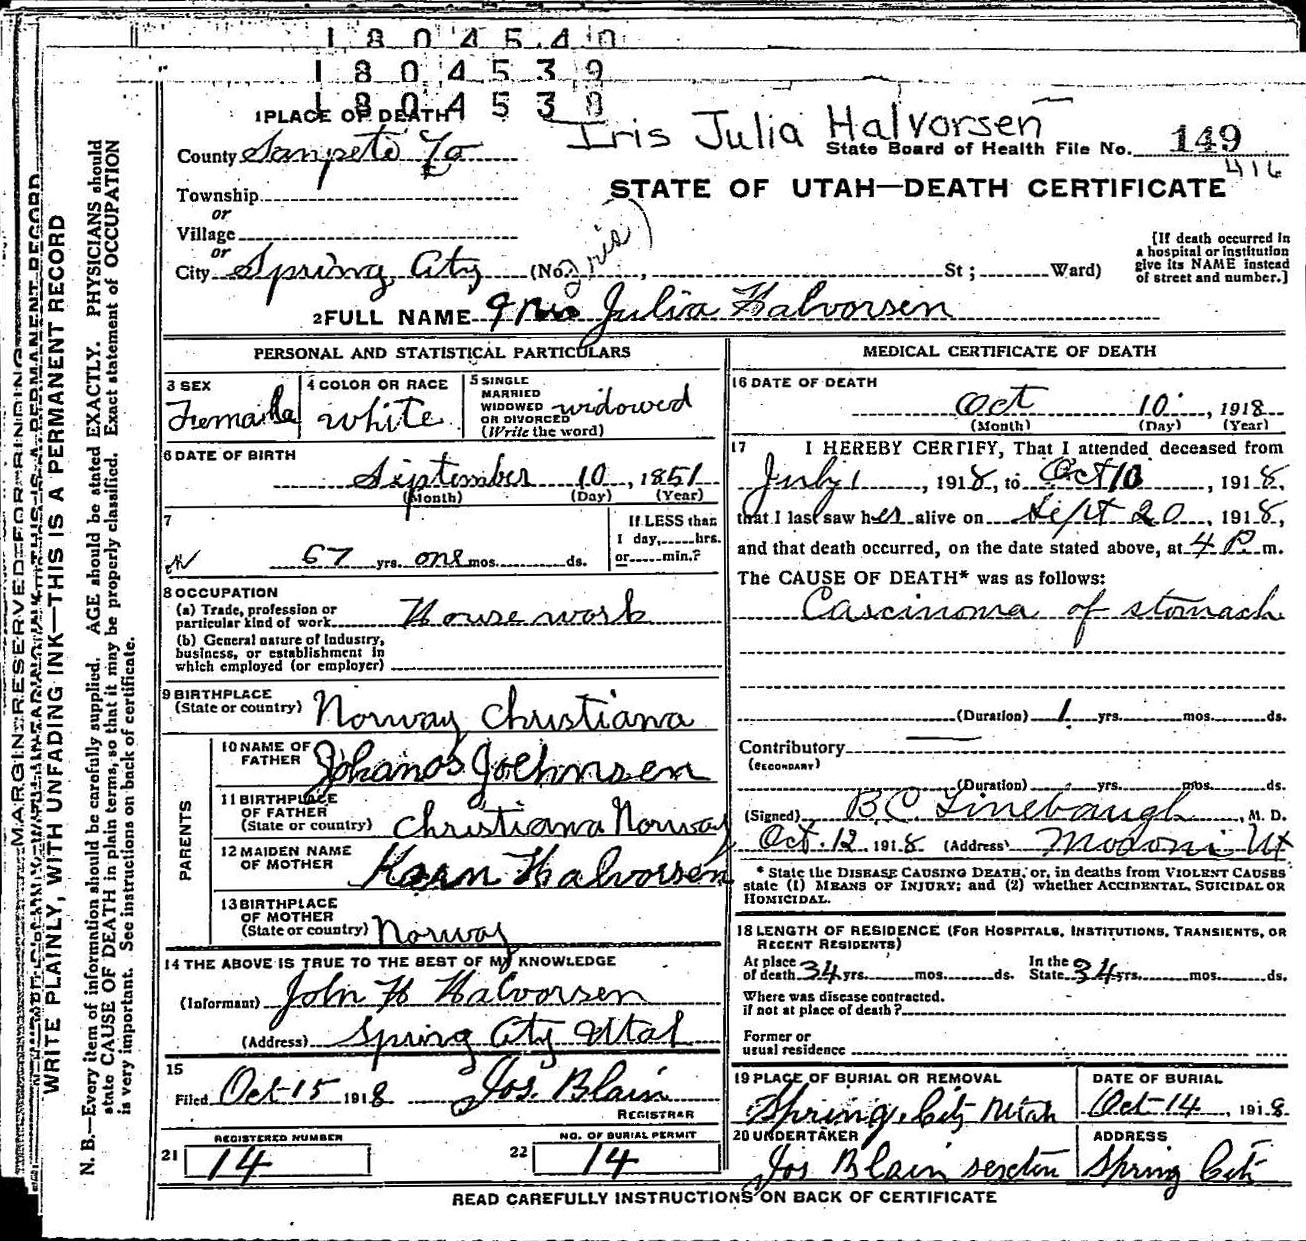 1 8 0 4 5 4 0
1 8 0 4 5 3 9
1 8 0 4 5 3 8
1 PLACE OF DEATH
Iris Julia Halvorsen
County Sanpete Co
State Board of Health File No. 149
416
Township
STATE OF UTAH—DEATH CERTIFICATE
or
Village
or
City Spring City (No. , St ; Ward)
(Iris)
[If death occurred in a hospital or institution give its NAME instead of street and number.]
2 FULL NAME Julia Halvorsen
PERSONAL AND STATISTICAL PARTICULARS
3 SEX Femaile
4 COLOR OR RACE white
5 SINGLE MARRIED WIDOWED OR DIVORCED (Write the word) widowed
6 DATE OF BIRTH
September 10, 1851
(Month) (Day) (Year)
7 67 yrs. one mos. ds.
If LESS than 1 day, hrs. or min.?
8 OCCUPATION
(a) Trade, profession or particular kind of work House work
(b) General nature of Industry, business, or establishment in which employed (or employer)
9 BIRTHPLACE (State or country) Norway Christiana
PARENTS
10 NAME OF FATHER Johanos Joehmsen
11 BIRTHPLACE OF FATHER (State or country) Christiana Norway
12 MAIDEN NAME OF MOTHER Karn Halvorsen
13 BIRTHPLACE OF MOTHER (State or country) Norway
14 THE ABOVE IS TRUE TO THE BEST OF MY KNOWLEDGE
(Informant) John H Halvorsen
(Address) Spring City Utah
15
Filed Oct-15 1918 Jos. Blain
REGISTRAR
REGISTERED NUMBER
21 14
NO. OF BURIAL PERMIT
22 14
MEDICAL CERTIFICATE OF DEATH
16 DATE OF DEATH
Oct 10, 1918
(Month) (Day) (Year)
17 I HEREBY CERTIFY, That I attended deceased from
July 1, 1918, to Oct 10, 1918,
that I last saw her alive on Sept 20, 1918,
and that death occurred, on the date stated above, at 4 P. m.
The CAUSE OF DEATH* was as follows:
Carcinoma of stomach
(Duration) 1 yrs. mos. ds.
Contributory
(SECONDARY)
(Duration) yrs. mos. ds.
(Signed) B.C. Linebaugh, M. D.
Oct. 12 1918 (Address) Moroni Ut
* State the DISEASE CAUSING DEATH, or, in deaths from VIOLENT CAUSES
state (1) MEANS OF INJURY; and (2) whether ACCIDENTAL, SUICIDAL OR
HOMICIDAL.
18 LENGTH OF RESIDENCE (FOR HOSPITALS, INSTITUTIONS, TRANSIENTS, OR
RECENT RESIDENTS)
At place of death 34 yrs. mos. ds. In the State 34 yrs. mos. ds.
Where was disease contracted. if not at place of death?
Former or usual residence
19 PLACE OF BURIAL OR REMOVAL
Spring City Utah
DATE OF BURIAL
Oct-14, 1918
20 UNDERTAKER
Jos Blain sexton
ADDRESS
Spring City
READ CAREFULLY INSTRUCTIONS ON BACK OF CERTIFICATE
MARGIN RESERVED FOR BINDING
WRITE PLAINLY, WITH UNFADING INK—THIS IS A PERMANENT RECORD
N. B.—Every item of information should be carefully supplied. AGE should be stated EXACTLY. PHYSICIANS should
state CAUSE OF DEATH in plain terms, so that it may be properly classified. Exact statement of OCCUPATION
is very important. See instructions on back of certificate.